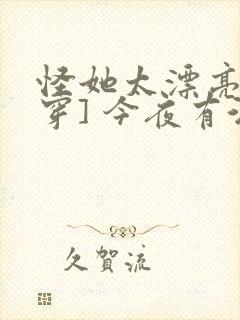 怪她太漂亮
穿]今夜有
久賀流